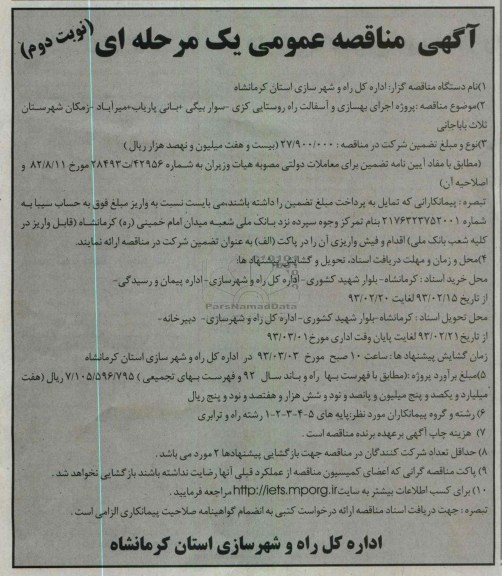 آگهی مناقصه عمومی یک مرحله ای (نوبت دوم)
۱)نام دستگاه مناقصه گزار: اداره کل راه و شهرسازی استان کرمانشاه
۲)موضوع مناقصه :پروژه اجرای بهسازی و آسفالت راه روستایی کزی -سوار بیگی -بانی پاریاب-میرآباد -زمکان شهرستان
ثلاث باباجانی
۳)نوع و مبلغ تضمین شرکت در مناقصه : ۲۷/۹۰۰/۰۰۰ (بیست و هفت میلیون و نهصد هزار ریال )
(مطابق با مفاد آیین نامه تضمین برای معاملات دولتی مصوبه هیات وزیران به شماره ۴۲۹۵۶/ت۲۸۴۹۳ مورخ ۸۲/۸/۱۱ و
اصلاحیه آن)
تبصره : پیمانکارانی که تمایل به پرداخت مبلغ تضمین را داشته باشند،می بایست نسبت به واریز مبلغ فوق به حساب سیبا به
شماره ۲۱۷۶۳۲۳۷۵۲۰۰۱ بنام تمرکز وجوه سپرده نزد بانک ملی شعبه میدان امام خمینی (ره) کرمانشاه (قابل واریز در
کلیه شعب بانک ملی) اقدام و فیش واریزی آن را در پاکت (الف) به عنوان تضمین شرکت در مناقصه ارائه نمایند.
۴)محل و زمان و مهلت دریافت اسناد، تحویل و گشایش پیشنهاد ها:
محل خرید اسناد : کرمانشاه- بلوار شهید کشوری- اداره کل راه و شهرسازی- اداره پیمان و رسیدگی-
از تاریخ ۹۳/۰۲/۱۵ لغایت ۹۳/۰۲/۲۰
ParsNamadData
محل تحویل اسناد : کرمانشاه-بلوار شهید کشوری-اداره کل راه و شهرسازی- دبیرخانه-
از تاریخ ۹۳/۰۲/۲۱ لغایت پایان وقت اداری مورخ ۹۳/۰۳/۰۱
زمان گشایش پیشنهاد ها : ساعت ۱۰ صبح مورخ ۹۳/۰۳/۰۳ در اداره کل راه و شهر سازی استان کرمانشاه
۵)مبلغ برآورد پروژه :(مطابق با فهرست بها راه و باند سال ۹۲ و فهرست بهای تجمیعی ) ۷/۱۰۵/۵۹۶/۷۹۵ ریال (هفت
میلیارد و یکصد و پنج میلیون و پانصد و نود و شش هزار و هفتصد و نود و پنج ریال
۶) رشته و گروه پیمانکاران مورد نظر:پایه های ۵-۴-۳-۲-۱ رشته راه و ترابری
۷) هزینه چاپ آگهی برعهده برنده مناقصه است .
۸)حداقل تعداد شرکت کنندگان در مناقصه جهت بازگشایی پیشنهادها ۲ مورد می باشد .
۹) پاکت مناقصه گرانی که اعضای کمیسیون مناقصه از عملکرد قبلی آنها رضایت نداشته باشند بازگشایی نخواهد شد .
۱۰) برای کسب اطلاعات بیشتر به سایت http://iets.mporg.ir مراجعه فرمایید .
تبصره : جهت دریافت اسناد مناقصه ارائه درخواست کتبی به انضمام گواهینامه صلاحیت پیمانکاری الزامی است .
اداره کل راه و شهرسازی استان کرمانشاه